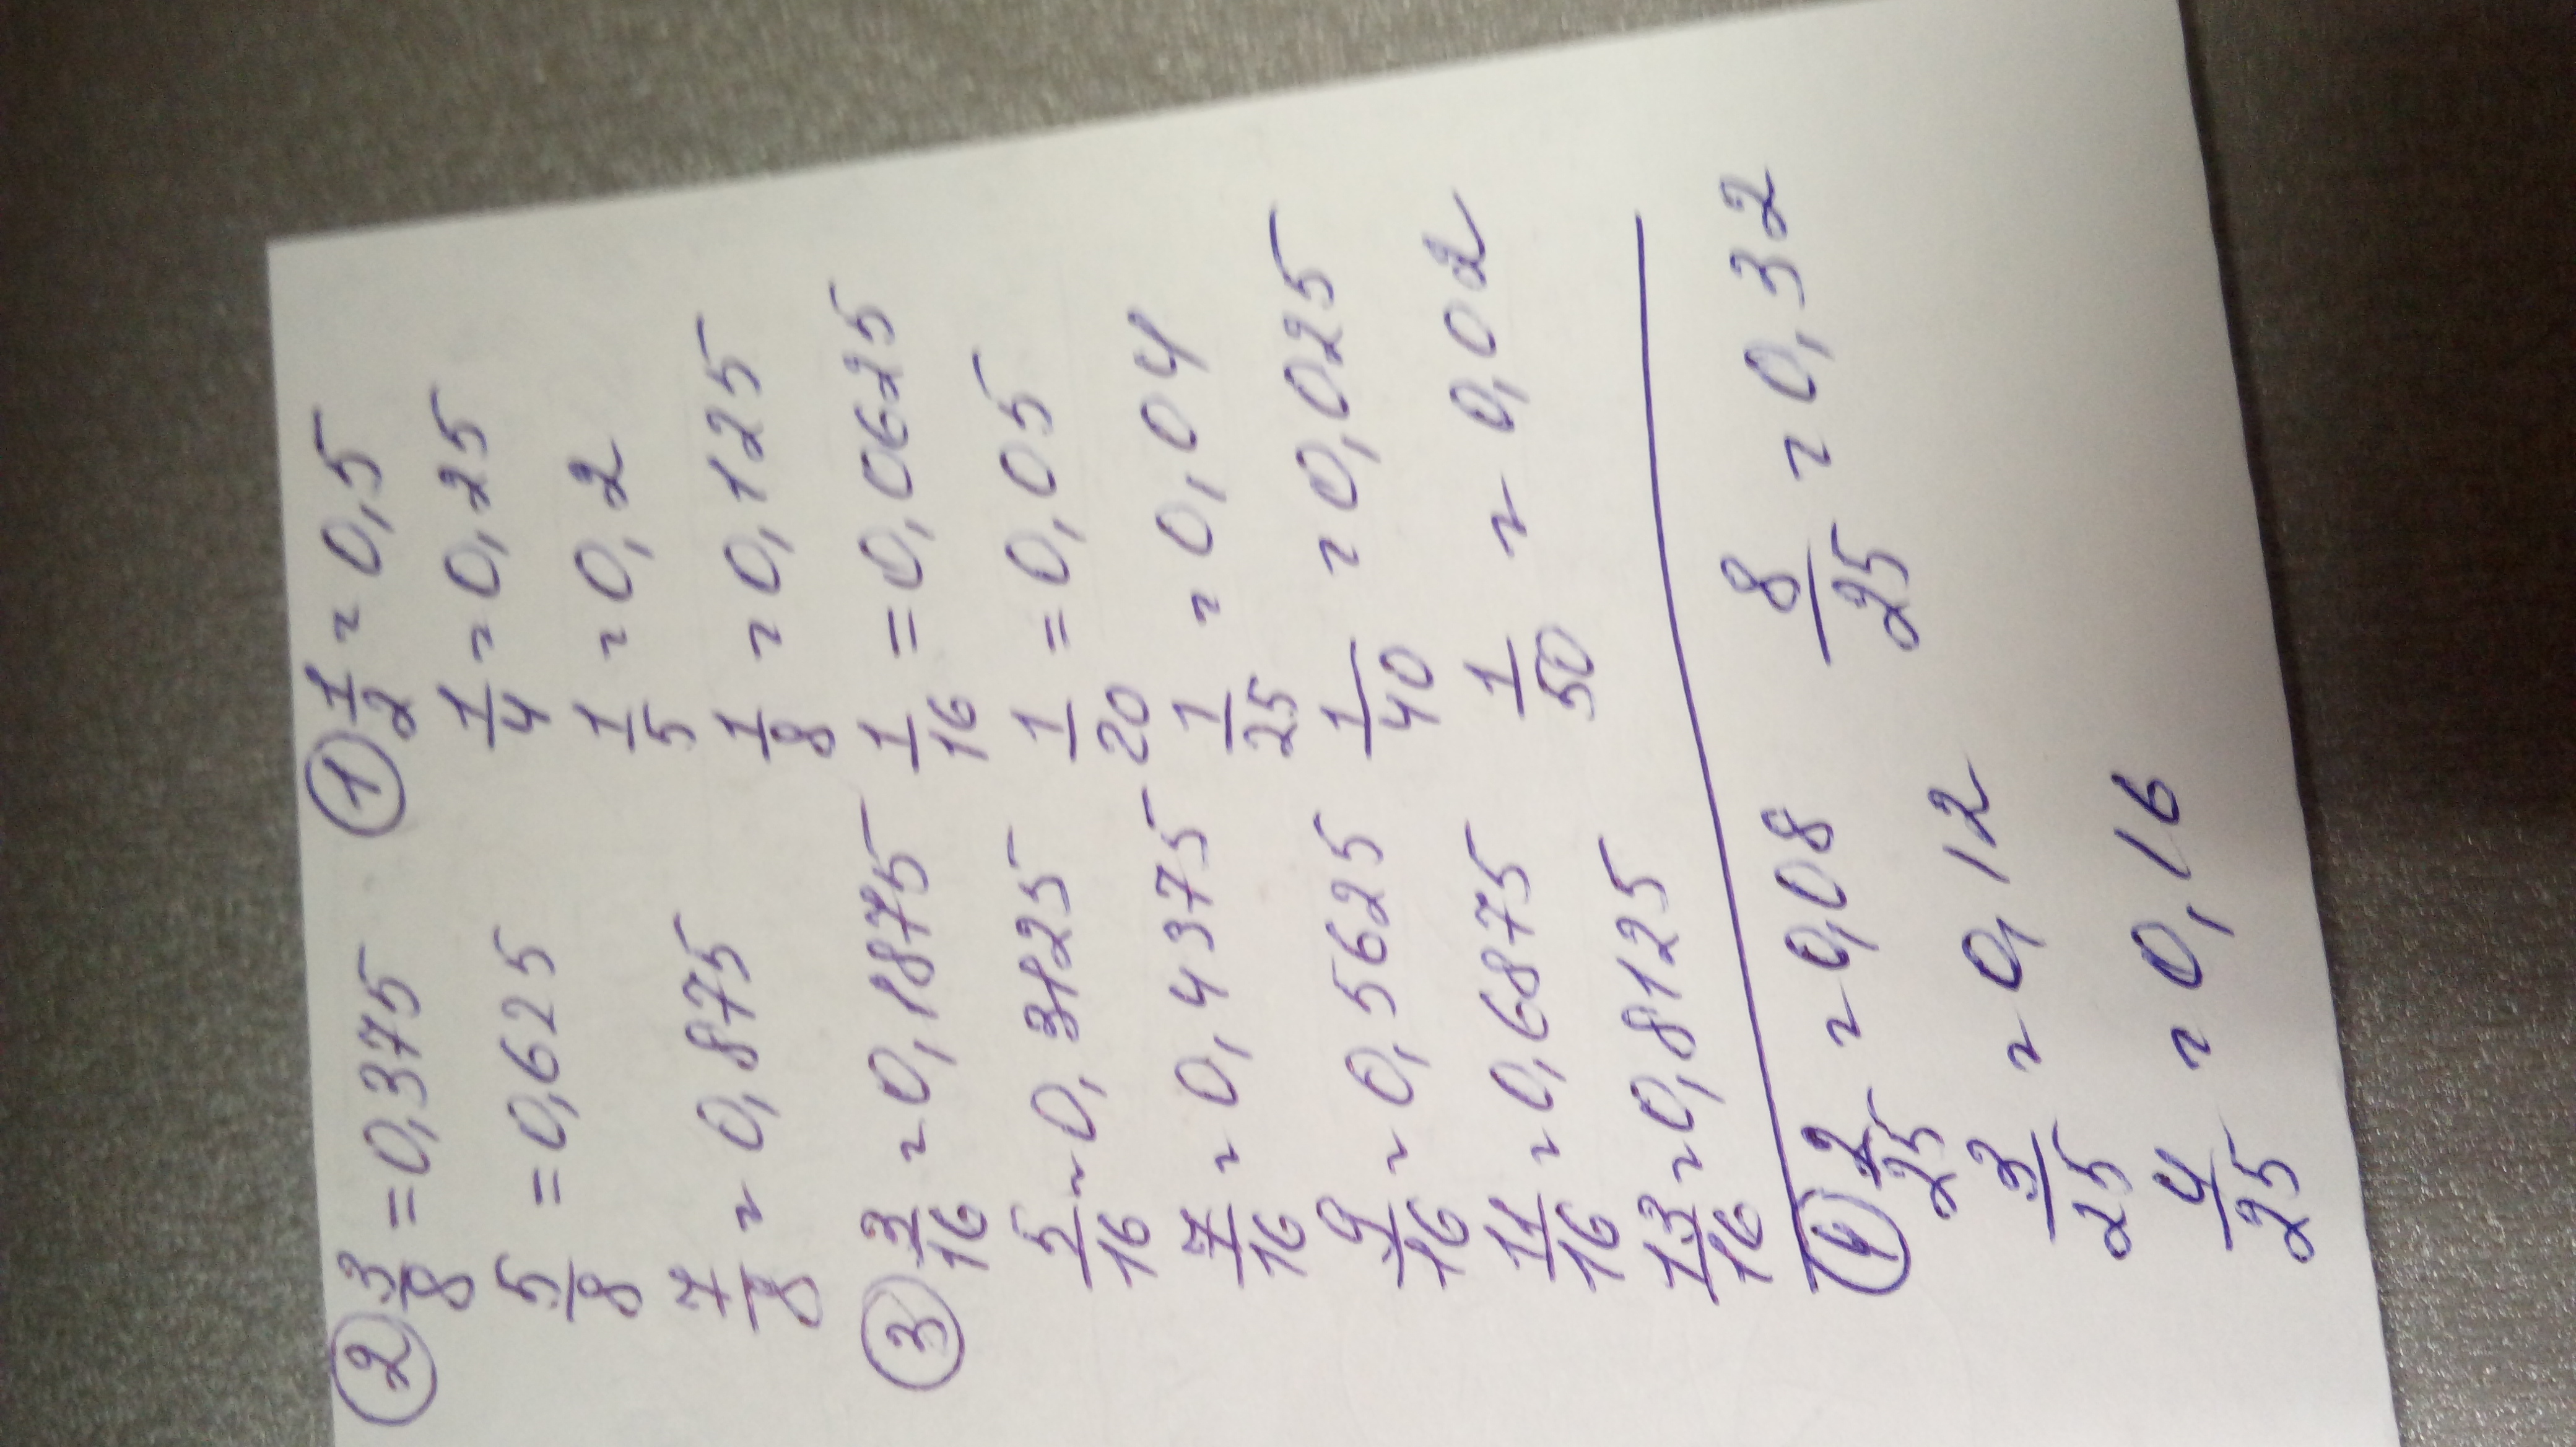 ① 1/2 = 0,5
1/4 = 0,25
1/5 = 0,2
1/8 = 0,125
1/16 = 0,0625
1/20 = 0,05
1/25 = 0,04
1/40 = 0,025
1/50 = 0,02
② 3/8 = 0,375
5/8 = 0,625
7/8 = 0,875
③ 3/16 = 0,1875
5/16 = 0,3125
7/16 = 0,4375
9/16 = 0,5625
11/16 = 0,6875
13/16 = 0,8125
④ 2/25 = 0,08
3/25 = 0,12
4/25 = 0,16
8/25 = 0,32